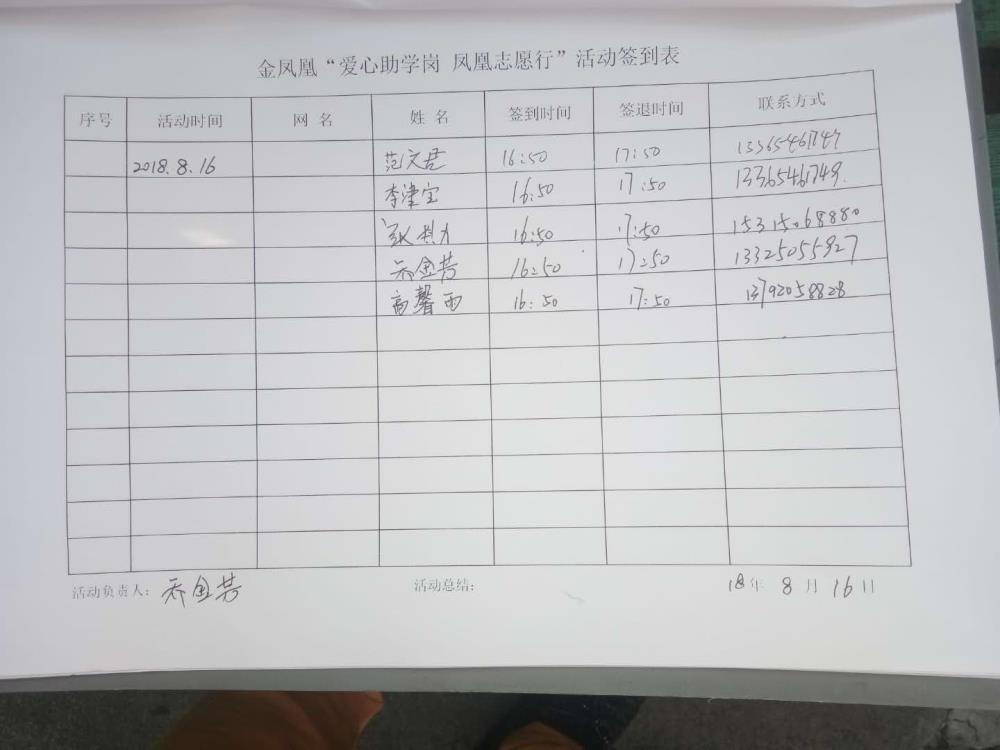 金凤凰“爱心助学岗 凤凰志愿行”活动签到表
序号 活动时间 网 名 姓 名 签到时间 签退时间 联系方式
2018.8.16 范文君 16:50 17:50 13365461747
李津宝 16:50 17:50 13365461749.
16:50 17:50 15315068880
乔金芳 16:50 17:50 13325055927
高馨雨 16:50 17:50 13792058828
活动负责人: 乔金芳 活动总结: 18年 8月 16日